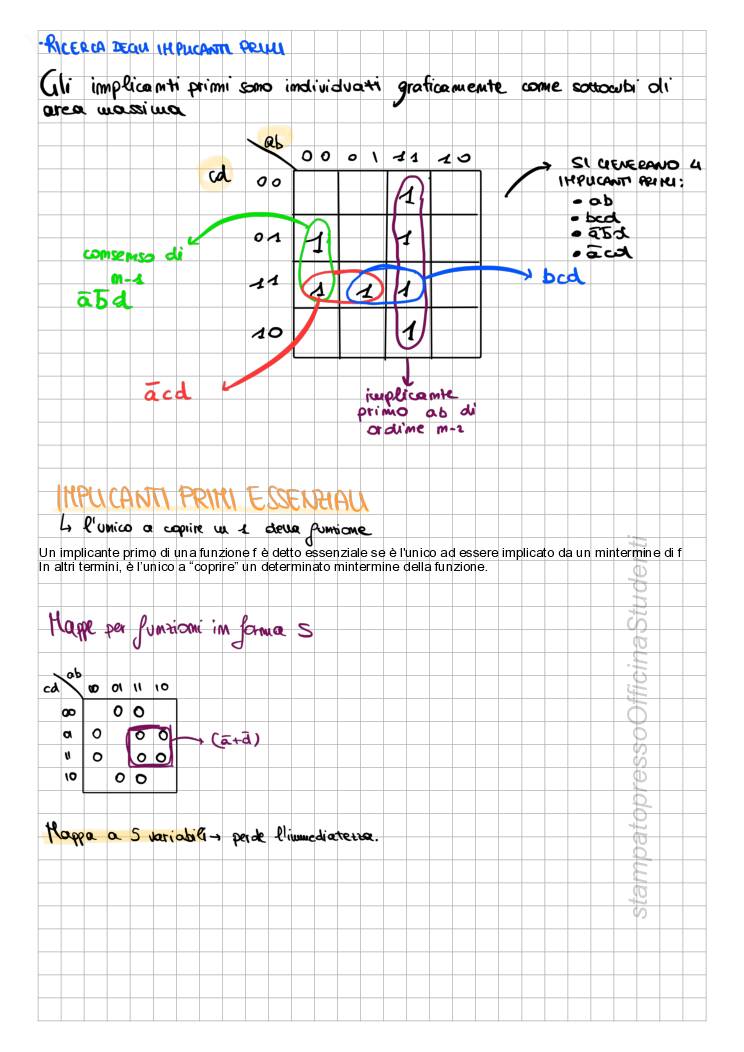 ·RICERCA DEGLI IMPLICANTI PRIMI
Gli implicanti primi sono individuati graficamente come sottocubi di
area massima
ab
cd
00 01 11 10
00
01
11
10
1
1 1
1 1 1
1
consenso di
m-1
a̅b̅d
a̅cd
bcd
implicante
primo ab di
ordine m-2
SI GENERANO 4
IMPLICANTI PRIMI:
• ab
• bcd
• a̅b̅d
• a̅cd
IMPLICANTI PRIMI ESSENZIALI
↳ l'unico a coprire un 1 della funzione
Un implicante primo di una funzione f è detto essenziale se è l'unico ad essere implicato da un mintermine di f
In altri termini, è l'unico a “coprire” un determinato mintermine della funzione.
Mappe per funzioni in forma S
ab
cd 00 01 11 10
00 0 0
01 0 0 0
11 0 0 0
10 0 0
(a̅+d̅)
Mappa a 5 variabili → perde l'immediatezza.
stampatopressoOfficinaStudenti